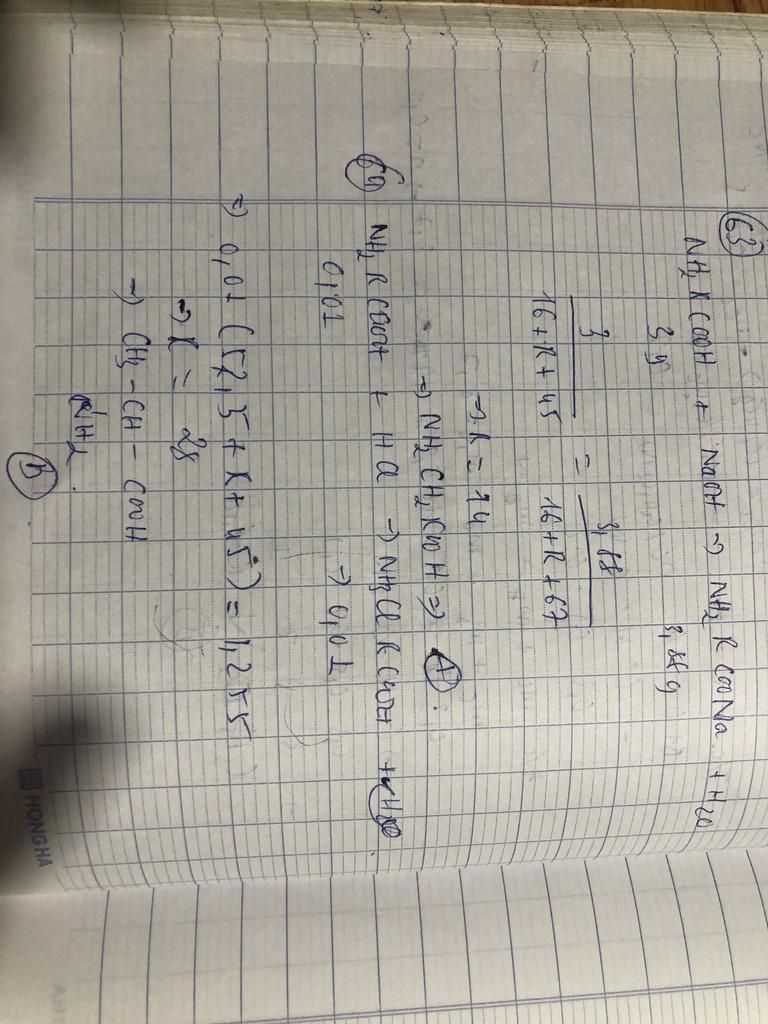 63
NH2RCOOH + NaOH → NH2RCOONa + H2O
3g 3,88g
3 / 16+R+45 = 3,88 / 16+R+67
→ R = 14
→ NH2CH2COOH ⇒ A.
64 NH2RCOOH + HCl → NH3ClRCOOH
0,01 → 0,01
⇒ 0,01 (52,5 + R + 45) = 1,255
→ R = 28
→ CH3 - CH - COOH
NH2.
B
HONG HA